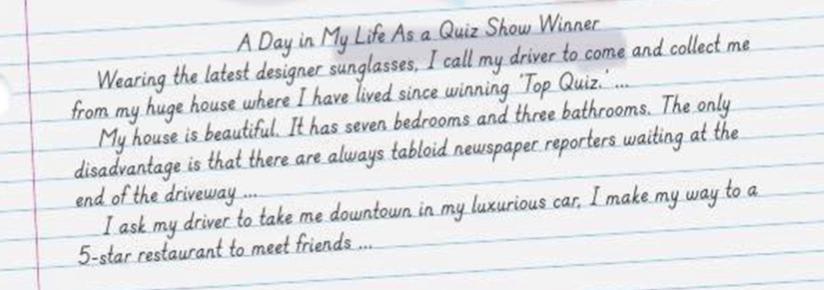 A Day in My Life As a Quiz Show Winner
Wearing the latest designer sunglasses, I call my driver to come and collect me
from my huge house where I have lived since winning 'Top Quiz.' ...
My house is beautiful. It has seven bedrooms and three bathrooms. The only
disadvantage is that there are always tabloid newspaper reporters waiting at the
end of the driveway ...
I ask my driver to take me downtown in my luxurious car, I make my way to a
5-star restaurant to meet friends ...